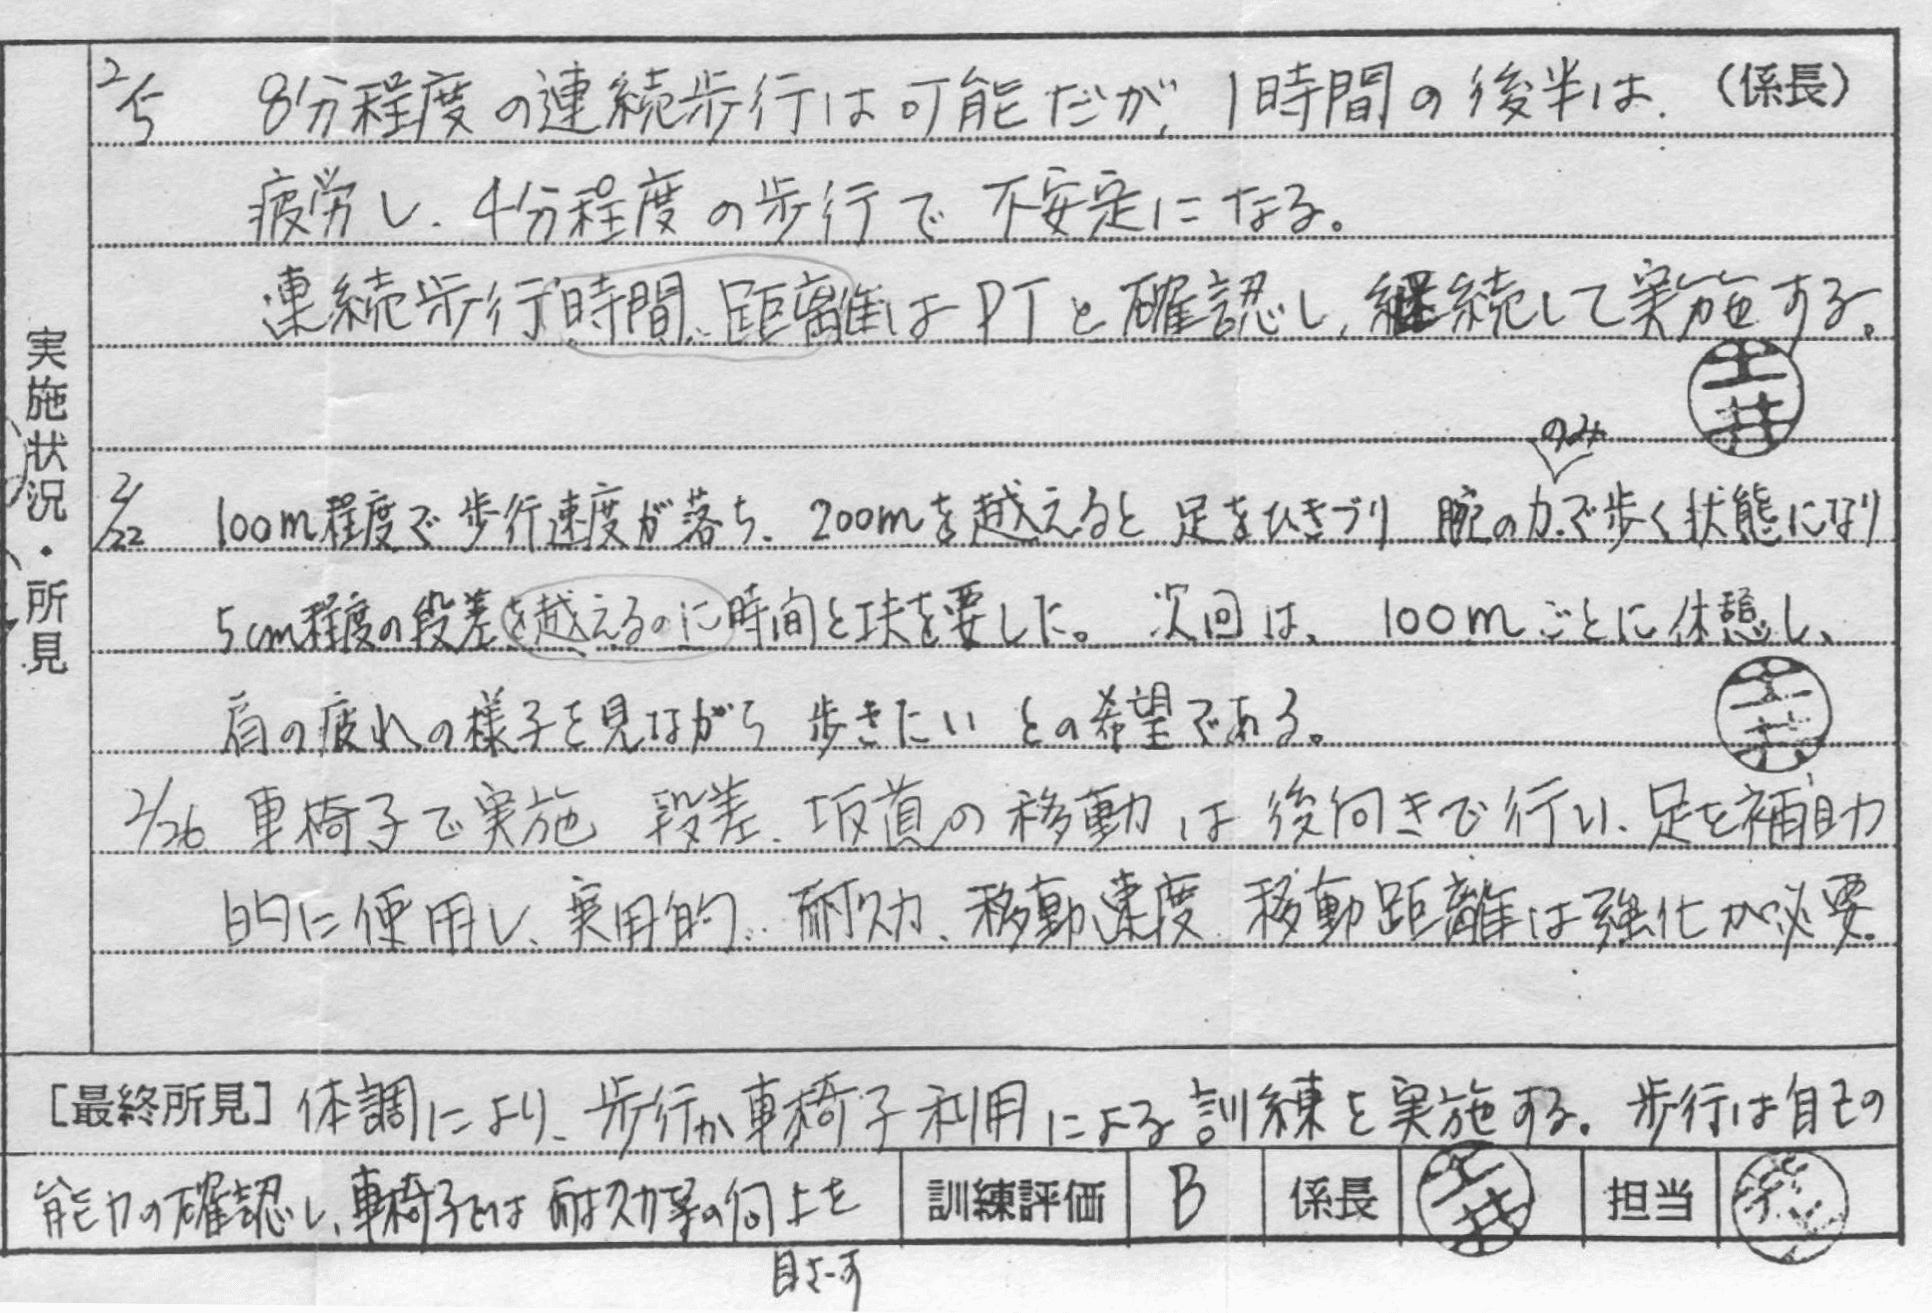 実施状況・所見
2/5 8分程度の連続歩行は可能だが、1時間の後半は、(係長)
疲労し、4分程度の歩行で不安定になる。
連続歩行時間、距離はPTと確認し、継続して実施する。
土井
のみ
2/22 100m程度で歩行速度が落ち、200mを越えると足をひきづり腕の力で歩く状態になり
5cm程度の段差を越えるのに時間と工夫を要した。次回は、100mごとに休憩し、
肩の疲れの様子を見ながら歩きたいとの希望である。
土井
2/26 車椅子で実施 段差、坂道の移動は後向きで行い、足を補助
的に使用し、実用的。耐久力、移動速度、移動距離は強化が必要。
[最終所見] 体調により、歩行か車椅子利用による訓練を実施する。歩行は自己の
能力の確認し、車椅子では耐久力等の向上を
目さす
訓練評価 B 係長 土井 担当